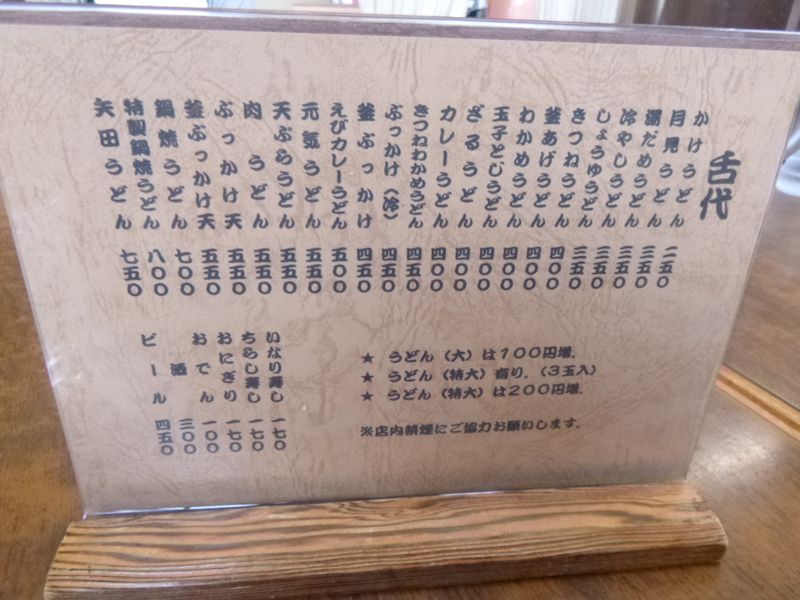 舌代
かけうどん 二五〇
月見うどん 三五〇
湯だめうどん 三五〇
冷やしうどん 三五〇
しょうゆうどん 三五〇
きつねうどん 四〇〇
釜あげうどん 四〇〇
わかめうどん 四〇〇
玉子とじうどん 四〇〇
ざるうどん 四〇〇
カレーうどん 四〇〇
きつねわかめうどん 四五〇
ぶっかけ(冷) 四五〇
釜ぶっかけ 四五〇
えびカレーうどん 五〇〇
元気うどん 五五〇
天ぷらうどん 五五〇
肉うどん 五五〇
ぶっかけ天 五五〇
釜ぶっかけ天 五五〇
鍋焼うどん 七〇〇
特製鍋焼うどん 八〇〇
矢田うどん 七五〇
★ うどん(大)は100円増.
★ うどん(特大)有り.(3玉入)
★ うどん(特大)は200円増.
※店内禁煙にご協力お願いします.
いなり寿し 一七〇
ちらし寿し 一七〇
おにぎり 一七〇
おでん 一〇〇
酒 三〇〇
ビール 四五〇